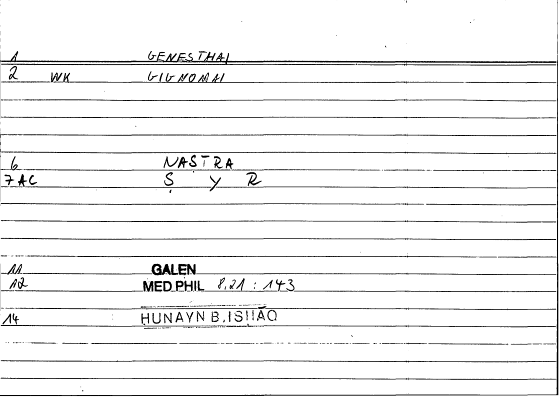 1 GENESTHAI
2 WK GIGNOMAI
6 NASTRA
7 AC Ṣ Y R
11 GALEN
12 MED.PHIL 8,21 : 143
14 HUNAYN B. ISḤĀQ